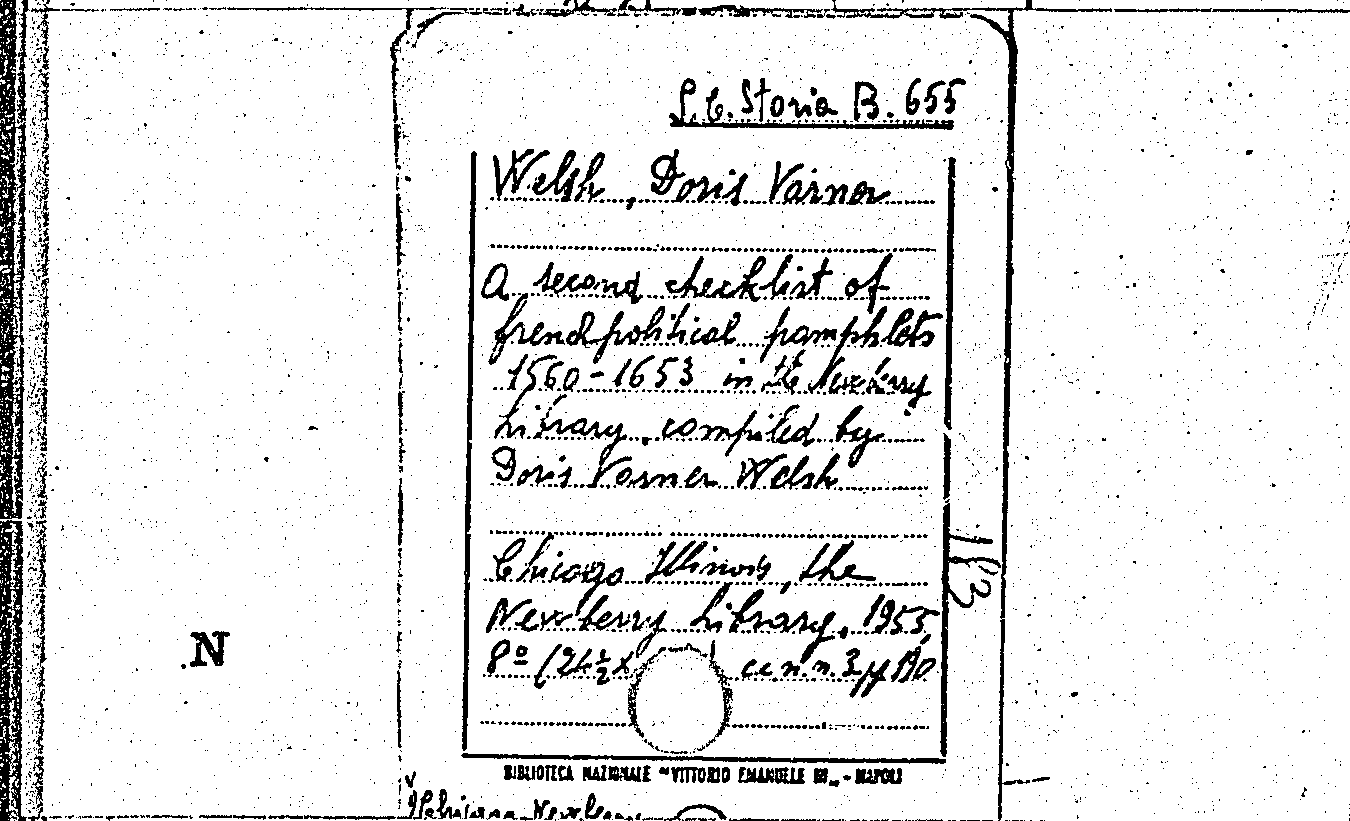 S.C. Storia B. 655
Welsh, Doris Varner
A second checklist of
french political pamphlets
1560-1653 in the Newberry
Library, compiled by
Doris Varner Welsh
Chicago Illinois, the
Newberry Library, 1955,
8º (24½x cc n.n. 3, pp 190
183
N
BIBLIOTECA NAZIONALE "VITTORIO EMANUELE III" - NAPOLI